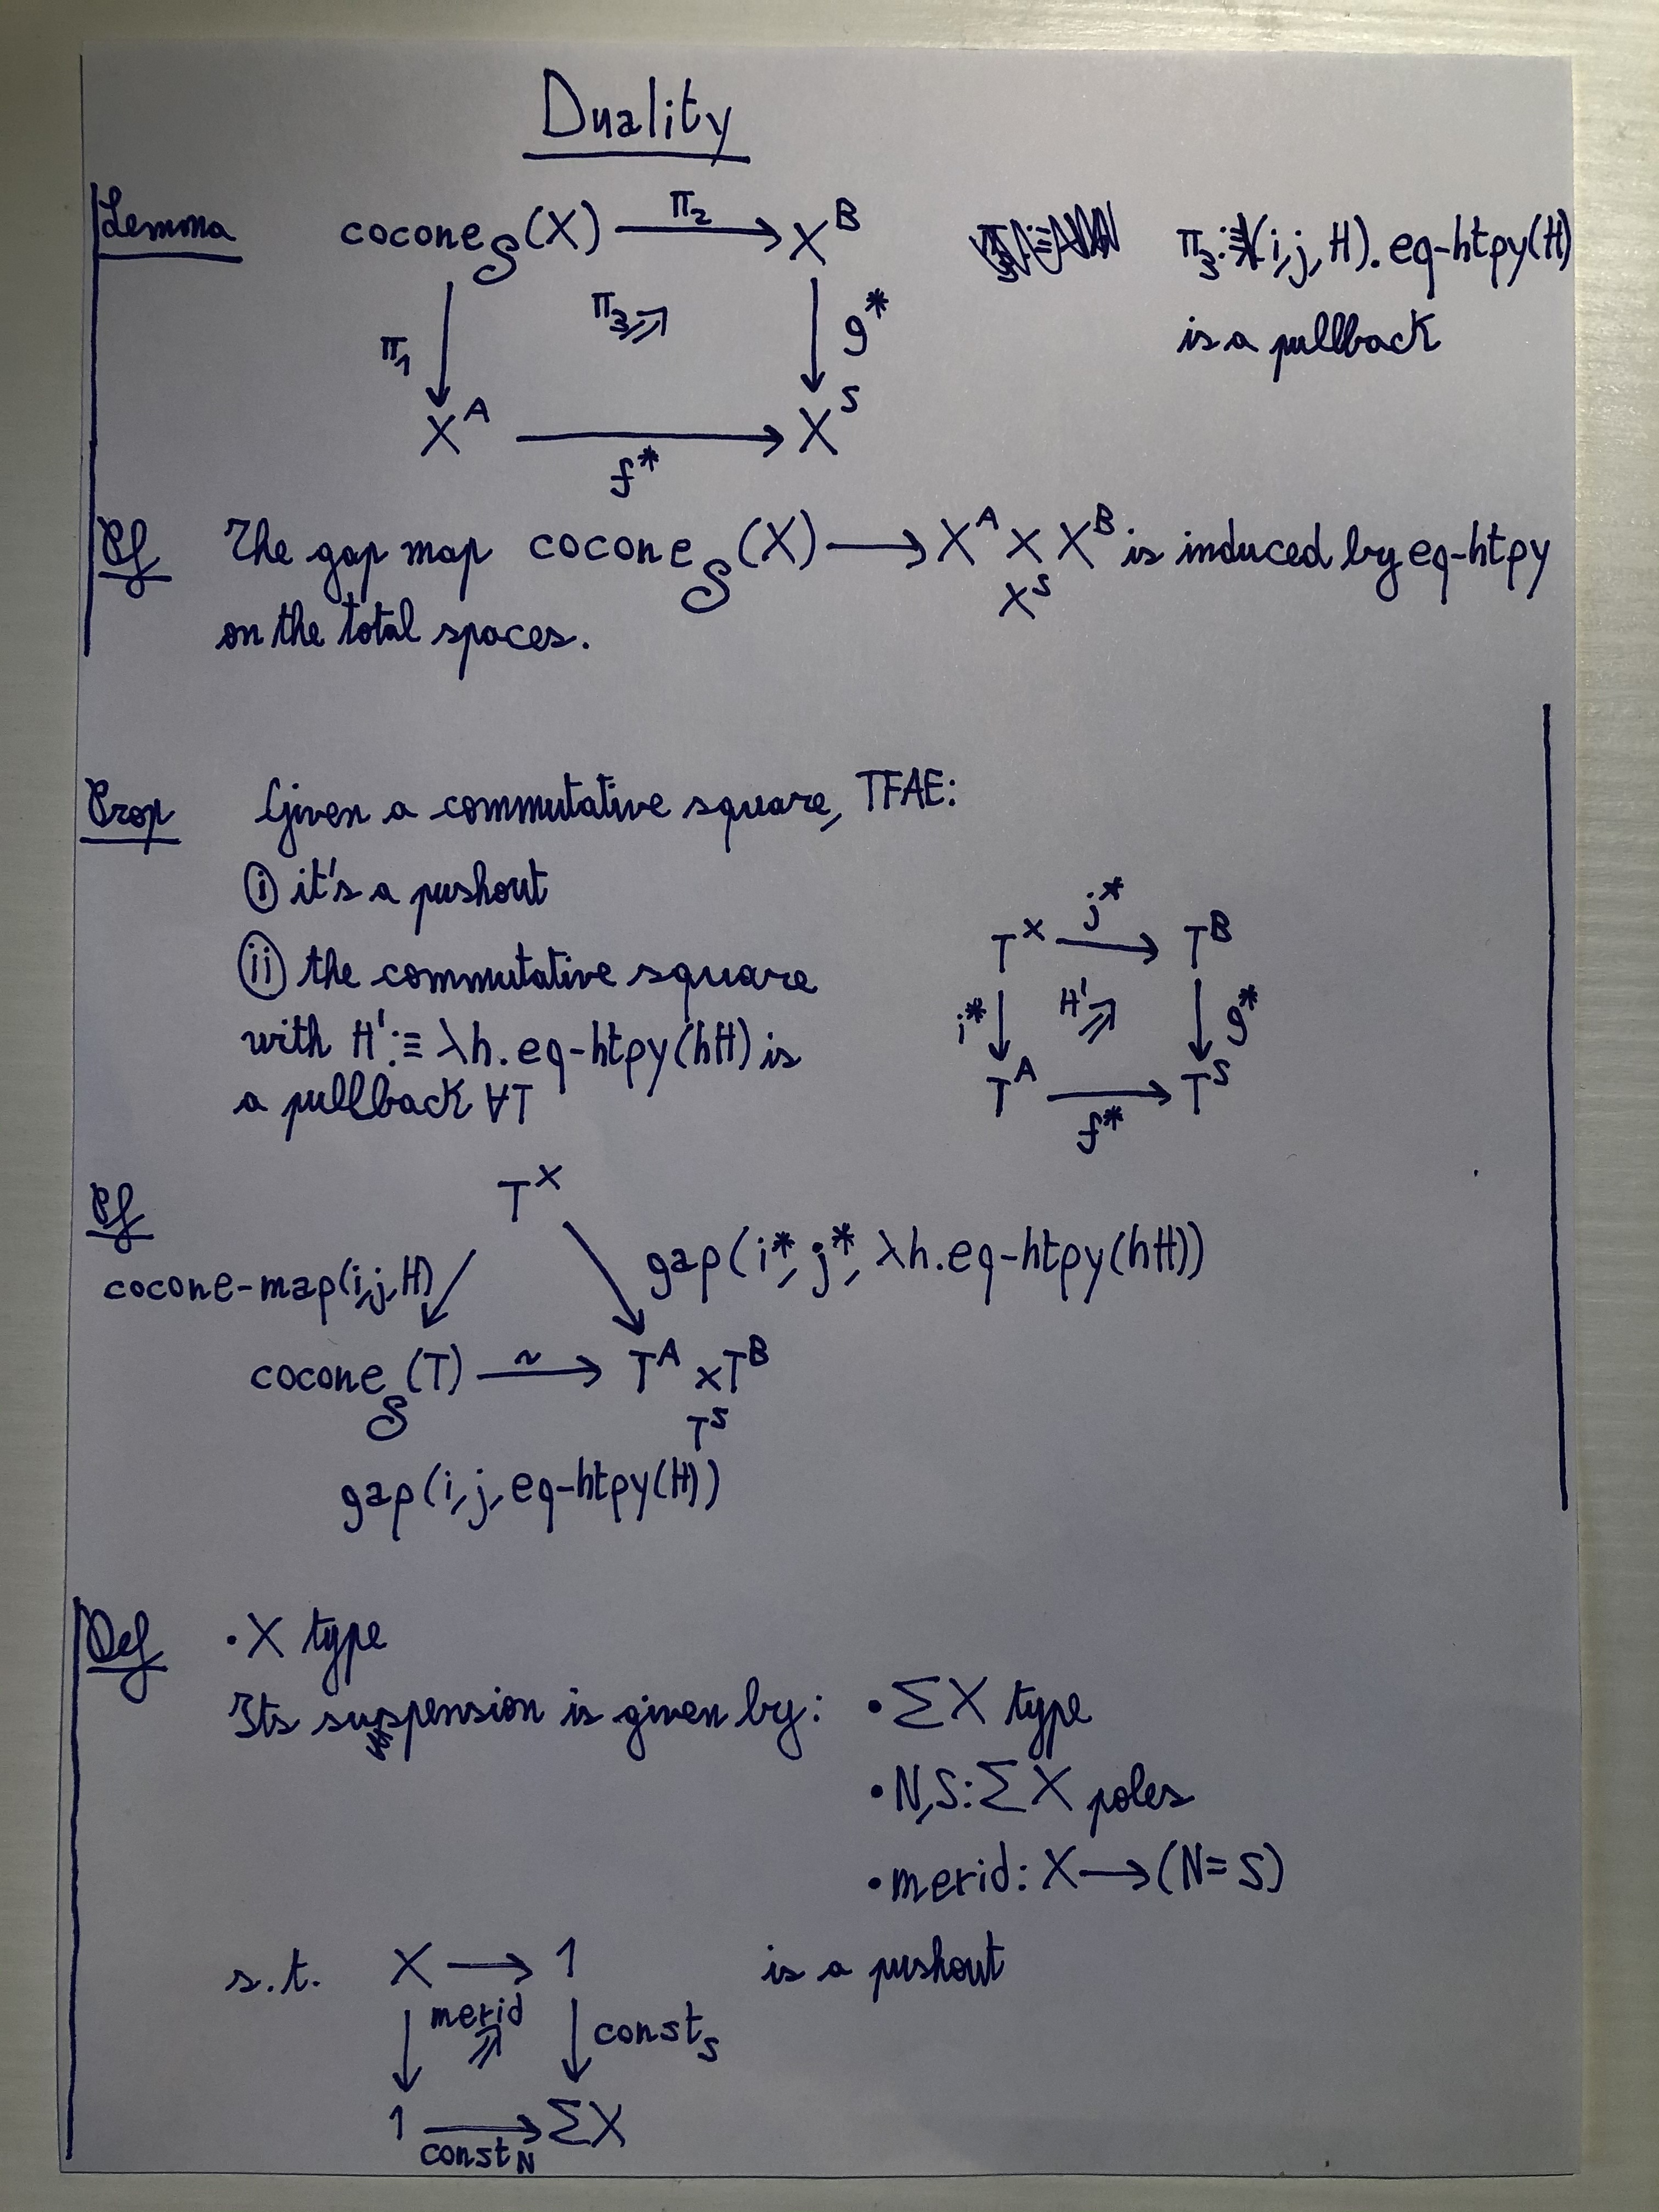 Duality
Lemma cocone_S(X) π₂ X^B π₃:≡λ(i,j,H).eq-htpy(H)
π₃ ⇗ is a pullback
π₁ g*
X^A X^S
f*
Pf The gap map cocone_S(X) ⟶ X^A × X^B is induced by eq-htpy
X^S
on the total spaces.
Prop Given a commutative square, TFAE:
ⓘ it's a pushout
ⓘⓘ the commutative square
with H':≡ λh.eq-htpy(hH) is
a pullback ∀T
j*
T^X ⟶ T^B
i* H' ⇗ g*
T^A ⟶ T^S
f*
Pf T^X
cocone-map(i,j,H) gap(i*,j*,λh.eq-htpy(hH))
cocone_S(T) ~⟶ T^A × T^B
T^S
gap(i,j,eq-htpy(H))
Def •X type
Its suspension is given by: •ΣX type
•N,S:ΣX poles
•merid: X⟶(N=S)
s.t. X ⟶ 1 is a pushout
merid ⇗ const_S
1 ⟶ ΣX
const_N